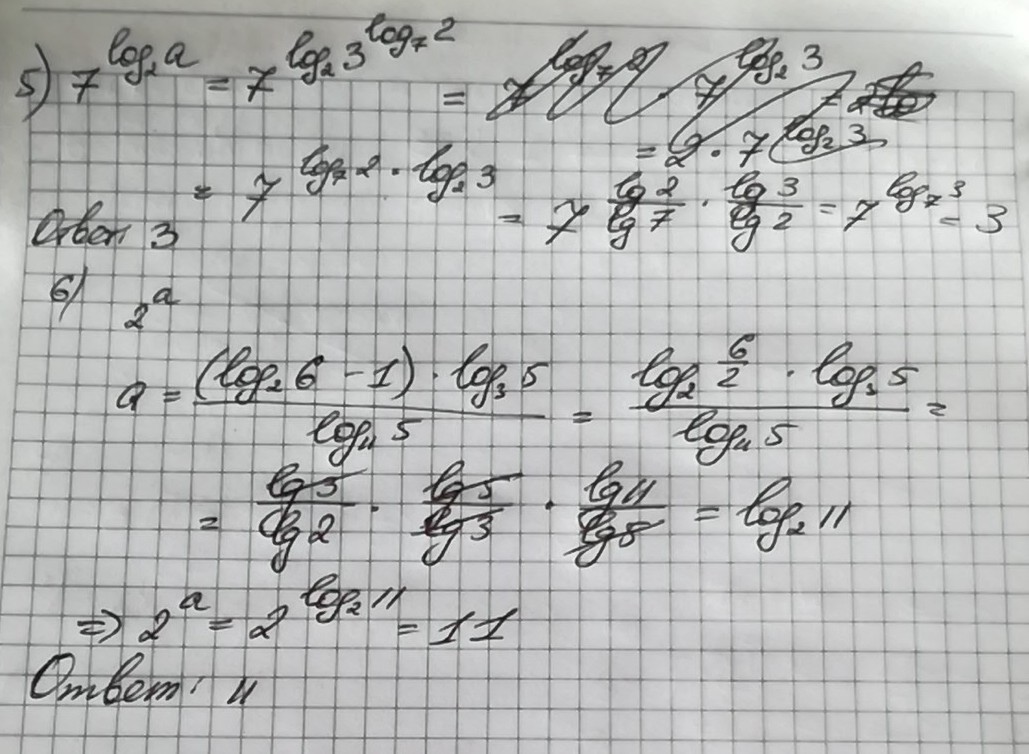 5) 7^{log₂a} = 7^{log₂3^{log₇2}} =
= 2 · 7^{log₂3}
= 7^{log₇2 · log₂3} = 7^{\frac{lg 2}{lg 7} · \frac{lg 3}{lg 2}} = 7^{log₇3} = 3
Ответ: 3
6) 2^a
a = \frac{(log₂6 - 1) · log₃5}{log₁₁5} = \frac{log₂\frac{6}{2} · log₃5}{log₁₁5} =
= \frac{lg 3}{lg 2} · \frac{lg 5}{lg 3} · \frac{lg 11}{lg 5} = log₂11
⇒ 2^a = 2^{log₂11} = 11
Ответ: 11